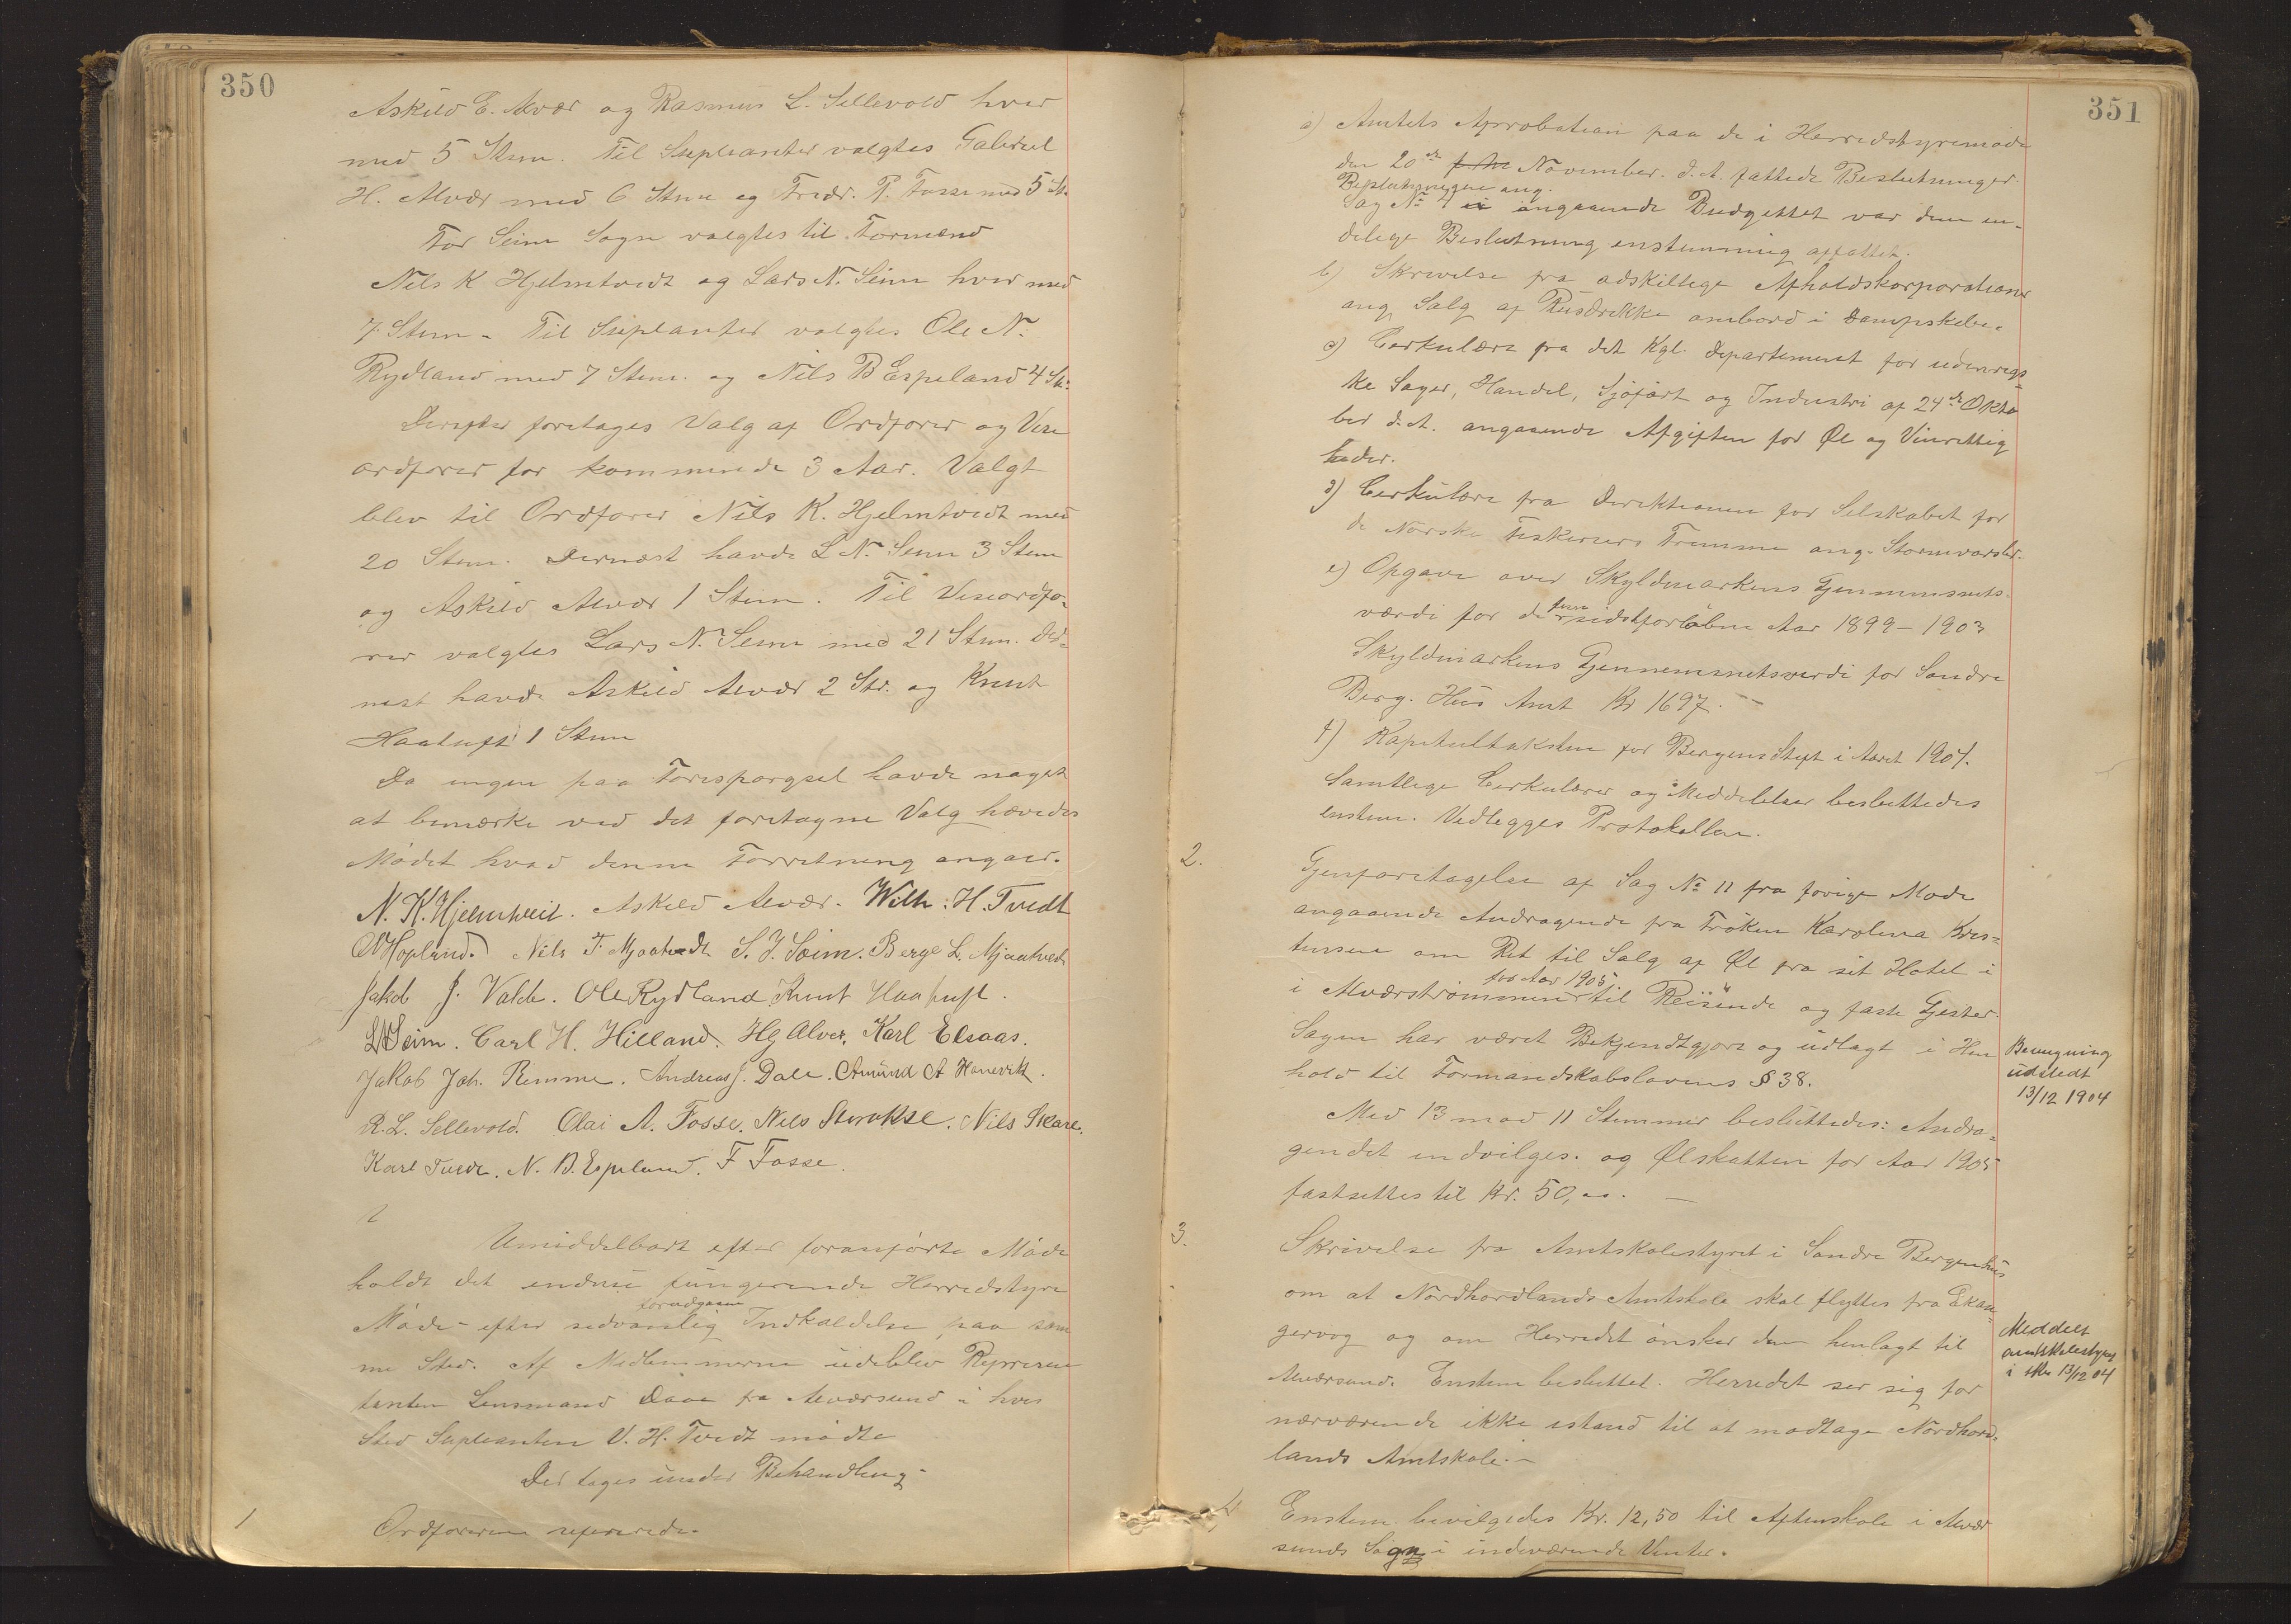 350
Askild E. Alvær og Rasmus L. Sellevold hver
med 5 Stem. Til Supleanter valgtes Gabriel
H. Alvær med 6 Stem og Fredr. P. Fosse med 5 St.
For Seim Sogn valgtes til Formænd
Nils K Hjelmtvedt og Lars N. Seim hver med
7 Stem - Til Suplanter valgtes Ole N.
Rydland med 7 Stem. og Nils B Espeland 4 St.
Derefter foretages Valg af Ordfører og Vise
ordfører for kommende 3 Aar. Valgt
blev til Ordfører Nils K. Hjelmtvedt med
20 Stem. Dernæst havde L N. Seim 3 Stem
og Askild Alvær 1 Stem. Til Viseordfø-
rer valgtes Lars N. Seim med 21 Stem. Der-
næst havde Askild Alvær 2 Str. og Knut
Haatuft 1 Stem
Da ingen paa Forespørgsel havde noget
at bemærke ved det foretagne Valg hævedes
Mødet hvad denne Forretning angaar.
N. K. Hjelmtveit. Askild Alvær. Wilh: H. Tvedt
Hopland. Nils T. Mjaatvedt S. J. Seim. Berge L. Mjaatvedt
Jakob J. Valde. Ole Rydland Knut Haatuft.
L N Seim. Carl H. Hilland. H G Alver, Karl Elsaas.
Jakob Joh. Remme. Andreas J. Dale. Amund A Hanevik.
R. L. Sellevold. Olai A. Fosse. Nils Skare.
Karl Tvedt. N. B. Espeland. F Fosse.
Umiddelbart efter foranførte Møde
holdt det endnu fungerende Herredstyre
foredgaaen
Møde - efter sedvanlig Indkaldelse paa sam
me Sted. Af Medlemmerne udeblev Repræsen
tanten Lensmand Daae fra Alværsund i hvis
Sted Supleanten V. H. Tvedt mødte
Der toges under Behandling -
1
Ordføreren refererede.
351
a) Amtets Aprobation paa de i Herredstyremøde
den 20de November d. A. fattede Beslutninger
Beslutningene ang.
Sag No 4 angaaende Budgettet var dem en-
delige Beslutning enstemmig affattet.
b) Skrivelse fra adskillige Afholdskorporationer
ang. Salg af Rusdrikke ombord i Dampskibe.
c) Cerkulære fra det Kgl. Departement for udenrigs-
ke Sager, Handel, Sjøfart og Industri af 24de Okto
ber d. A. angaaende Afgiften for Øl og Vinrettig
heder.
d) Cerkulære fra Direktionen for Selskabet for
de Norske Fiskeriers Fremme ang. Stormvarsler.
e) Opgave over Skyldmarkens Gjennemsnits-
fem
værdi for de sidstforløbne Aar 1899 - 1903
Skyldmarkens Gjennemsnetsverdi for Søndre
Berg. Hus Amt Kr 1697. -
f) Kapitultaksten for Bergens Stift i Aaret 1904.
Samtlige Cerkulærer og Meddelelser besluttedes
enstem. Vedlegges Protokollen.
2.
Gjenforetagelse af Sag No 11 fra forige Møde
angaaende Andragende fra Frøken Karolina Kris-
tensen om Ret til Salg af Øl fra sit Hotel i
for Aar 1905
i Alværstrømmen til Reisende og faste Gjester.
Sagen har været Bekjendtgjort og udlagt i Hen
hold til Formandskabslovens § 38.
Bevægning
udstedt
13/12 1904
Med 13 mod 11 Stemmer besluttedes: Andra-
gendet indvilges. og Ølskatten for Aar 1905
fastsettes til Kr. 50,00. -
3.
Skrivelse fra Amtskolestyret i Søndre Bergenhus
om at Nordhordlands Amtskole skal flyttes fra Eikan-
gervåg og om Herredet ønsker den henlagt til
Alværsund. Enstem besluttet. Herredet ser sig for
nærværende ikke istand til at modtage Nordhord-
lands Amtskole. -
Meddelt
amtskolestyret
i skr 13/12 04
4.
Enstem. bevilgedes Kr. 12,50 til Aftenskole i Alvær
sunds Sogn i indeværende Vinter.